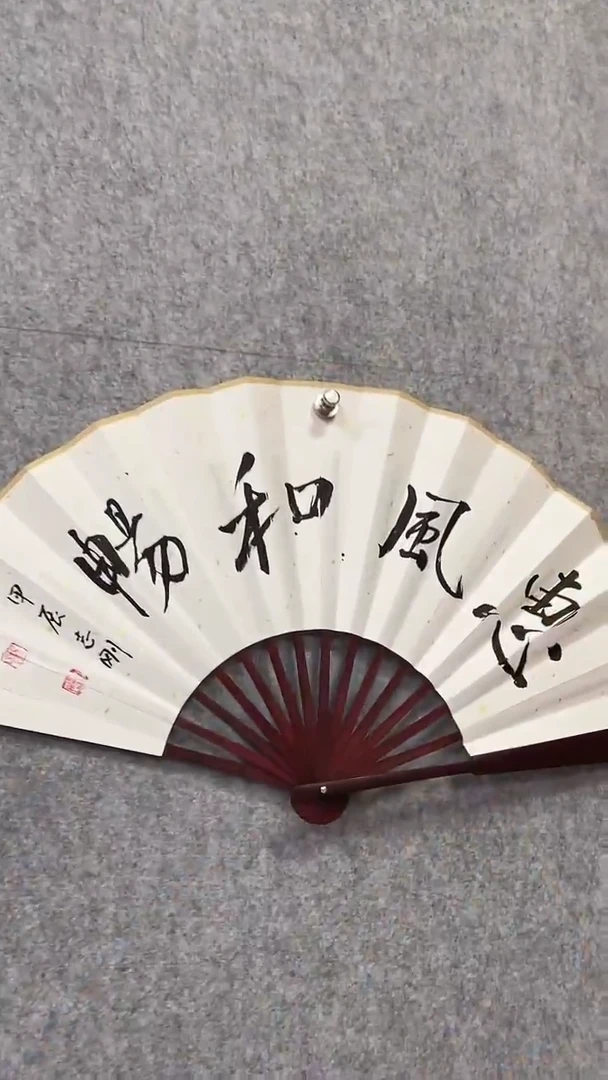 惠風和暢
甲辰志刚